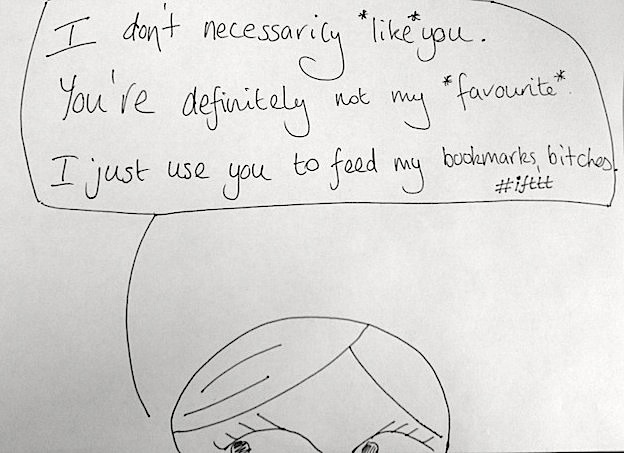 I don't necessarily *like* you.
You're definitely not my *favourite*.
I just use you to feed my bookmarks, bitches.
#ifttt